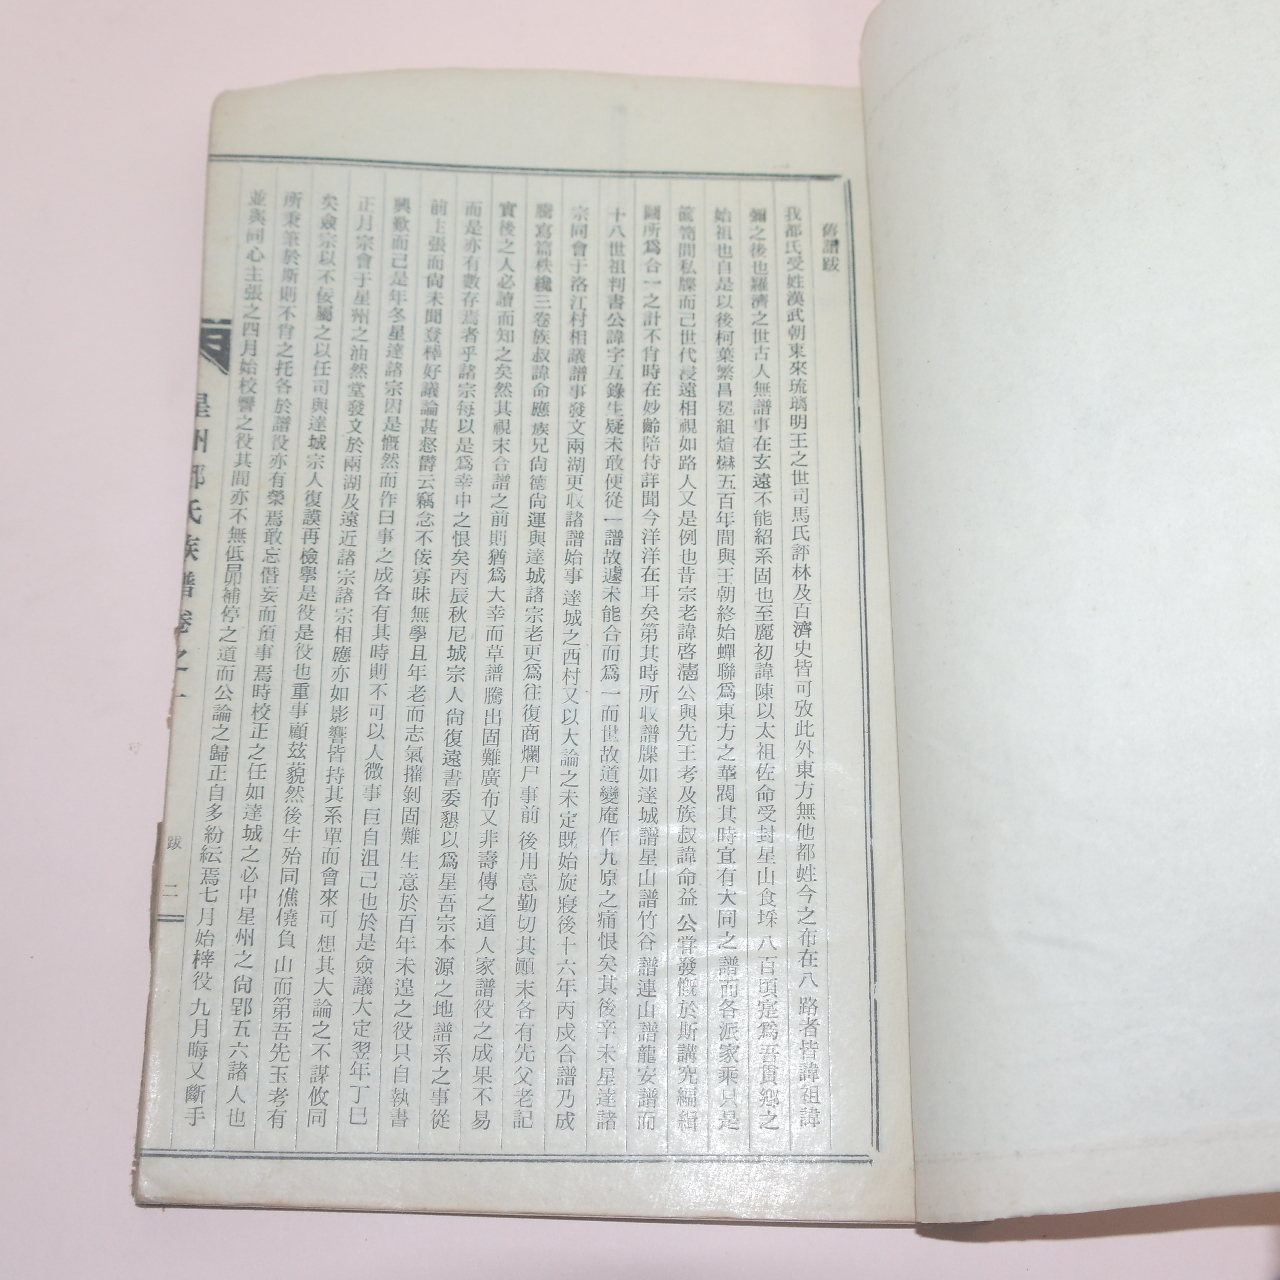 舊譜跋
我都氏受姓漢武朝東來琉璃明王之世司馬氏評林及百濟史皆可攷此外東方無他都姓今之布在八路者皆諱祖諱
彌之後也羅濟之世古人無譜事在玄遠不能紹系固也至麗初諱陳以太祖佐命受封星山食埰八百頃寔爲吾貫鄉之
始祖也自是以後柯葉繁昌冕組煊爀五百年間與王朝終始蟬聯爲東方之華閥其時宜有大同之譜而各派家乘只是
篋笥間私牒而已世代浸遠相視如路人又是例也昔宗老諱啓灉公與先王考及族叔諱命益公甞發慨於斯講究編緝
圖所爲合一之計不肯時在妙齡陪侍詳聞今洋洋在耳矣第其時所收譜牒如達城譜星山譜竹谷譜連山譜龍安譜而
十八世祖判書公諱字互錄生疑未敢便從一譜故遽未能合而爲一而世故道變庵作九原之痛恨矣其後辛未星達諸
宗同會于洛江村相議譜事發文兩湖更収諸譜始事達城之西村又以大論之未定既始旋寢後十六年丙戍合譜乃成
謄寫篇秩纔三卷族叔諱命應族兄尙德尙運與達城諸宗老更爲往復商爛尸事前後用意勤切其顚末各有先父老記
實後之人必讀而知之矣然其視末合譜之前則猶爲大幸而草譜謄出固難廣布又非壽傳之道人家譜役之成果不易
而是亦有數存焉者乎諸宗每以是爲幸中之恨矣丙辰秋尼城宗人尙復遠書委懇以爲星吾宗本源之地譜系之事從
前主張而尙未聞登梓好議論甚愸欝云竊念不侫寡昧無學且年老而志氣摧剝固難生意於百年未遑之役只自執書
興歎而己是年冬星達諸宗因是慨然而作曰事之成各有其時則不可以人微事巨自沮己也於是僉議大定翌年丁巳
正月宗會于星州之油然堂發文於兩湖及遠近諸宗諸宗相應亦如影響皆持其系單而會來可想其大論之不謀攸同
矣僉宗以不侫屬之以任司與達城宗人復謨再檢擧是役是役也重事顧玆藐然後生殆同僬僥負山而第吾先王考有
所秉筆於斯則不肯之托各於譜沒亦有榮焉敢忘僭妄而預事焉時校正之任如達城之必中星州之尙郢五六諸人也
並與同心主張之四月始校讐之役其間亦不無低昻補停之道而公論之歸正自多紛紜焉七月始梓役九月晦又斷手
星州都氏族譜卷之一 跋 二